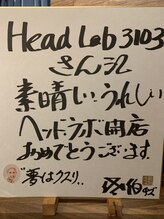 Head Lab 3103
さん江
素晴しい・うれしい
ヘッドラボ開店
おめでとうございます。
"夢はクスリ"